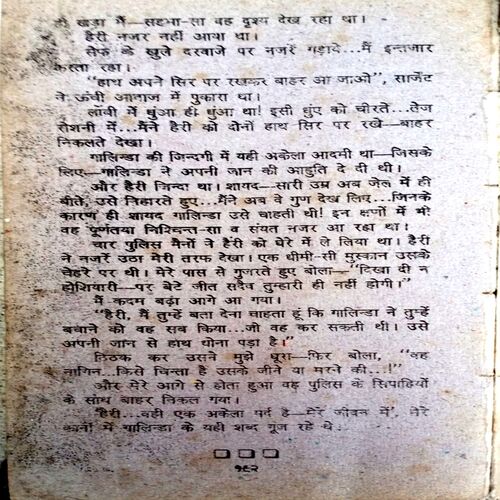 ही खड़ा मैं—सहमा-सा वह दृश्य देख रहा था।
हैरी नजर नहीं आया था।
सेफ के खुले दरवाजे पर नजरें गड़ाये...मैं इन्तजार
करता रहा।
"हाथ अपने सिर पर रखकर बाहर आ जाओ", सार्जेंट
ने ऊंची आवाज में पुकारा था।
लॉबी में धुंआ ही धुंआ था! इसी धुंए को चीरते...तेज
रोशनी में...मैंने हैरी को दोनों हाथ सिर पर रखे—बाहर
निकलते देखा।
गालिन्डा की जिन्दगी में यही अकेला आदमी था—जिसके
लिए—गालिन्डा ने अपनी जान की आहुति दे दी थी।
और हैरी जिन्दा था। शायद—सारी उम्र अब जेल में ही
बीते, उसे निहारते हुए...मैंने अब वे गुण देख लिए...जिनके
कारण ही शायद गालिन्डा उसे चाहती थी! इन क्षणों में भी
वह पूर्णतया निश्चिन्त-सा व संयत नजर आ रहा था।
चार पुलिस मैनों ने हैरी को घेरे में ले लिया था। हैरी
ने नजरें उठा मेरी तरफ देखा। एक धीमी-सी मुस्कान उसके
चेहरे पर थी। मेरे पास से गुजरते हुए बोला—"दिखा दी न
होशियारी—पर बेटे जीत सदैव तुम्हारी ही नहीं होगी।"
मैं कदम बढ़ा आगे आ गया।
"हैरी, मैं तुम्हें बता देना चाहता हूं कि गालिन्डा ने तुम्हें
बचाने को वह सब किया...जो वह कर सकती थी। उसे
अपनी जान से हाथ धोना पड़ा है।"
ठिठक कर उसने मुझे घूरा—फिर बोला, "वह
नागिन...किसे चिन्ता है उसके जीने या मरने की...!"
और मेरे आगे से होता हुआ वह पुलिस के सिपाहियों
के साथ बाहर निकल गया।
'हैरी...वही एक अकेला मर्द है—मेरे जीवन में', मेरे
कानों में गालिन्डा के यही शब्द गूंज रहे थे...
१९२